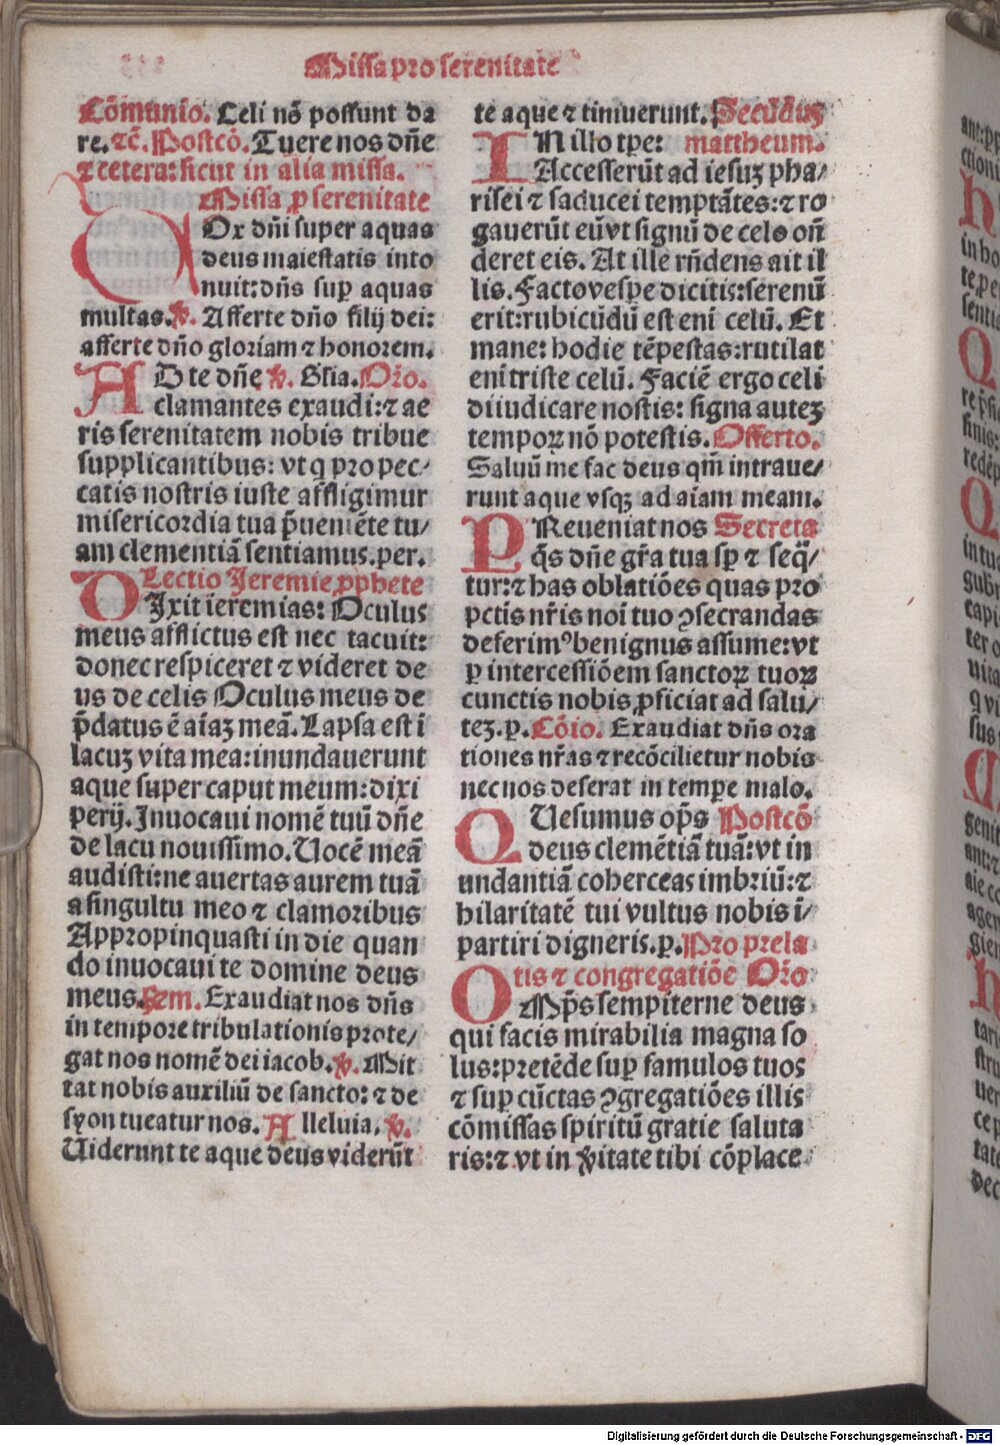 Missa pro serenitate
Cōmunio. Celi nō possunt da
re. ⁊c̄. Postcō. Tuere nos dñe
⁊ cetera: sicut in alia missa.
Missa ꝓ serenitate
Vox dñi super aquas
deus maiestatis into
nuit: dñs suꝑ aquas
multas. ℣. Afferte dño filij dei:
afferte dño gloriam ⁊ honorem.
AD te dñe ℣. Glia. Oŕo.
clamantes exaudi: ⁊ ae
ris serenitatem nobis tribue
supplicantibus: vt q pro pec⸗
catis nostris iuste affligimur
misericordia tua p̄ueniēte tu/
am clementiā sentiamus. per.
Lectio Jeremie ꝓphete
DJxit ieremias: Oculus
meus afflictus est nec tacuit:
donec respiceret ⁊ videret de
us de celis Oculus meus de
p̄datus ē aīaꝫ meā. Lapsa est ī
lacuꝫ vita mea: inundauerunt
aque super caput meum: dixi
perij. Inuocaui nomē tuū dñe
de lacu nouissimo. Uocē meā
audisti: ne auertas aurem tuā
a singultu meo ⁊ clamoribus
Appropinquasti in die quan
do inuocaui te domine deus
meus. Sem. Exaudiat nos dñs
in tempore tribulationis prote/
gat nos nomē dei iacob. ℣. Mit
tat nobis auxiliū de sancto: ⁊ de
syon tueatur nos. Alleluia. ℣.
Uiderunt te aque deus viderūt
te aque ⁊ timuerunt. Secūdūꝫ
IN illo tꝑe: mattheum.
Accesserūt ad iesuꝫ pha/
risei ⁊ saducei temptātes: ⁊ ro
gauerūt eū vt signū de celo oñ
deret eis. At ille rñdens ait il
lis. Facto vesꝑe dicitis: serenū
erit: rubicūdū est eni celū. Et
mane: hodie tēpestas: rutilat
eni triste celū. Faciē ergo celi
diiudicare nostis: signa auteꝫ
tempoꝝ nō potestis. Offerto.
Saluū me fac deus qm̄ intraue/
runt aque vsqꝫ ad aīam meam.
PReueniat nos Secreta
q̄s dñe gr̄a tua sꝑ ⁊ seq̄/
tur: ⁊ has oblatiōes quas pro
pctīs nr̄is noī tuo ꝯsecrandas
deferimꝰ benignus assume: vt
ꝑ intercessiōem sanctoꝝ tuoꝝ
cunctis nobis ꝓficiat ad salu/
teꝫ. ꝑ. Cōio. Exaudiat dñs ora
tiones nr̄as ⁊ recōcilietur nobis
nec nos deserat in tempe malo.
QUesumus oꝑs Postcō
deus clemētiā tuā: vt in
undantiā coherceas imbriū: ⁊
hilaritatē tui vultus nobis ī/
partiri digneris. ꝑ. Pro prela
tis ⁊ congregatiōe Oŕo
OMp̄s sempiterne deus
qui facis mirabilia magna so
lus: pretēde suꝑ famulos tuos
⁊ suꝑ cūctas ꝯgregatiōes illis
cōmissas spiritū gratie saluta
ris: ⁊ vt in v̄itate tibi cōplace
Digitalisierung gefördert durch die Deutsche Forschungsgemeinschaft - DFG